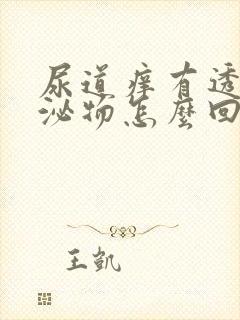 尿道痒有透
泌物怎麼回
王凯